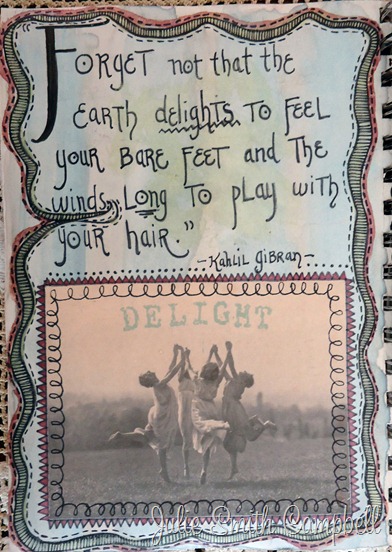 "Forget not that the
earth delights to feel
your bare feet and the
winds long to play with
your hair."
-Kahlil Gibran-
DELIGHT
Julie Smith Campbell